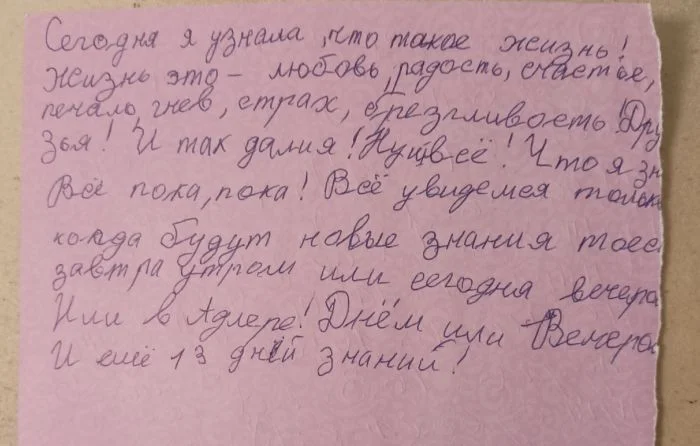 Сегодня я узнала, что такое жизнь!
Жизнь это – любовь, радость, счастье,
печаль, гнев, страх, брезгливость! Дру
зья! И так далия! Ну щ всё! Что я зн
Всё пока, пока! Всё увидемся только
когда будут новые знания тоес
завтра утром или сегодня вечера
Или в Адлере! Днём или Вечеро
И ещё 13 дней знаний!